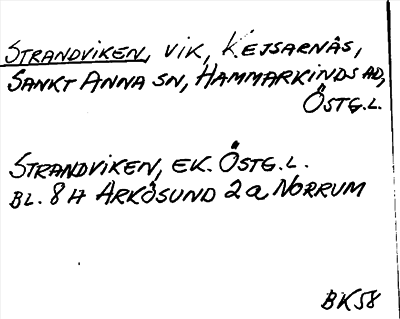 STRANDVIKEN, VIK, KEJSARNÄS,
SANKT ANNA SN, HAMMARKINDS HD,
ÖSTG.L.
STRANDVIKEN, EK. ÖSTG.L.
BL. 8 H ARKÖSUND 2a NORRUM
BK58